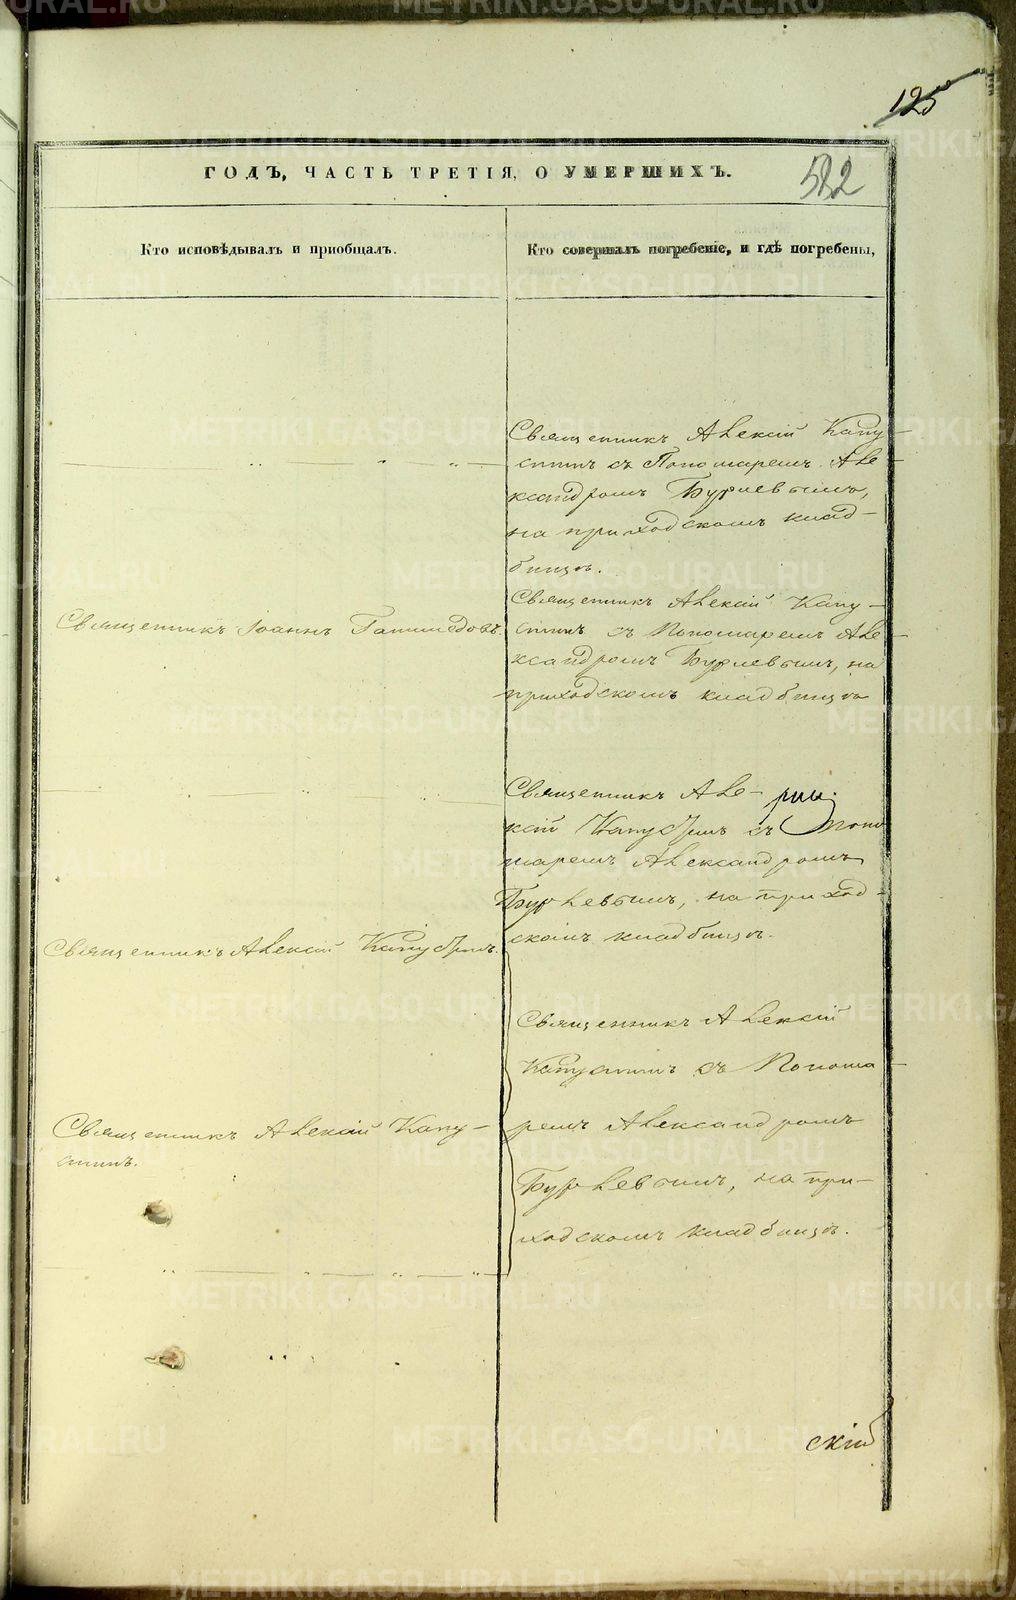 125
ГОДЪ, ЧАСТЬ ТРЕТІЯ, О УМЕРШИХЪ.
582
Кто исповѣдывалъ и приобщалъ.
Кто совершалъ погребеніе, и гдѣ погребены,
Священникъ Алексій Капу-
стинъ съ Пономаремъ Але-
ксандромъ Бурлевымъ,
на приходскомъ клад-
бищѣ.
Священникъ Іоаннъ
Священникъ Алексій Капу-
стинъ съ Пономаремъ Але-
ксандромъ Бурлевымъ, на
приходскомъ кладбищѣ
Священникъ Але-
ксій Капустинъ съ Поно
маремъ Александромъ
Бурлевымъ, на приход-
скомъ кладбищѣ.
Священникъ Алексій Капустинъ.
Священникъ Алексій
Капустинъ съ Понома-
ремъ Александромъ
Бурлевымъ, на при-
ходскомъ кладбищѣ.
Священникъ Алексій Капу-
стинъ.
скій
METRIKI.GASO-URAL.RU